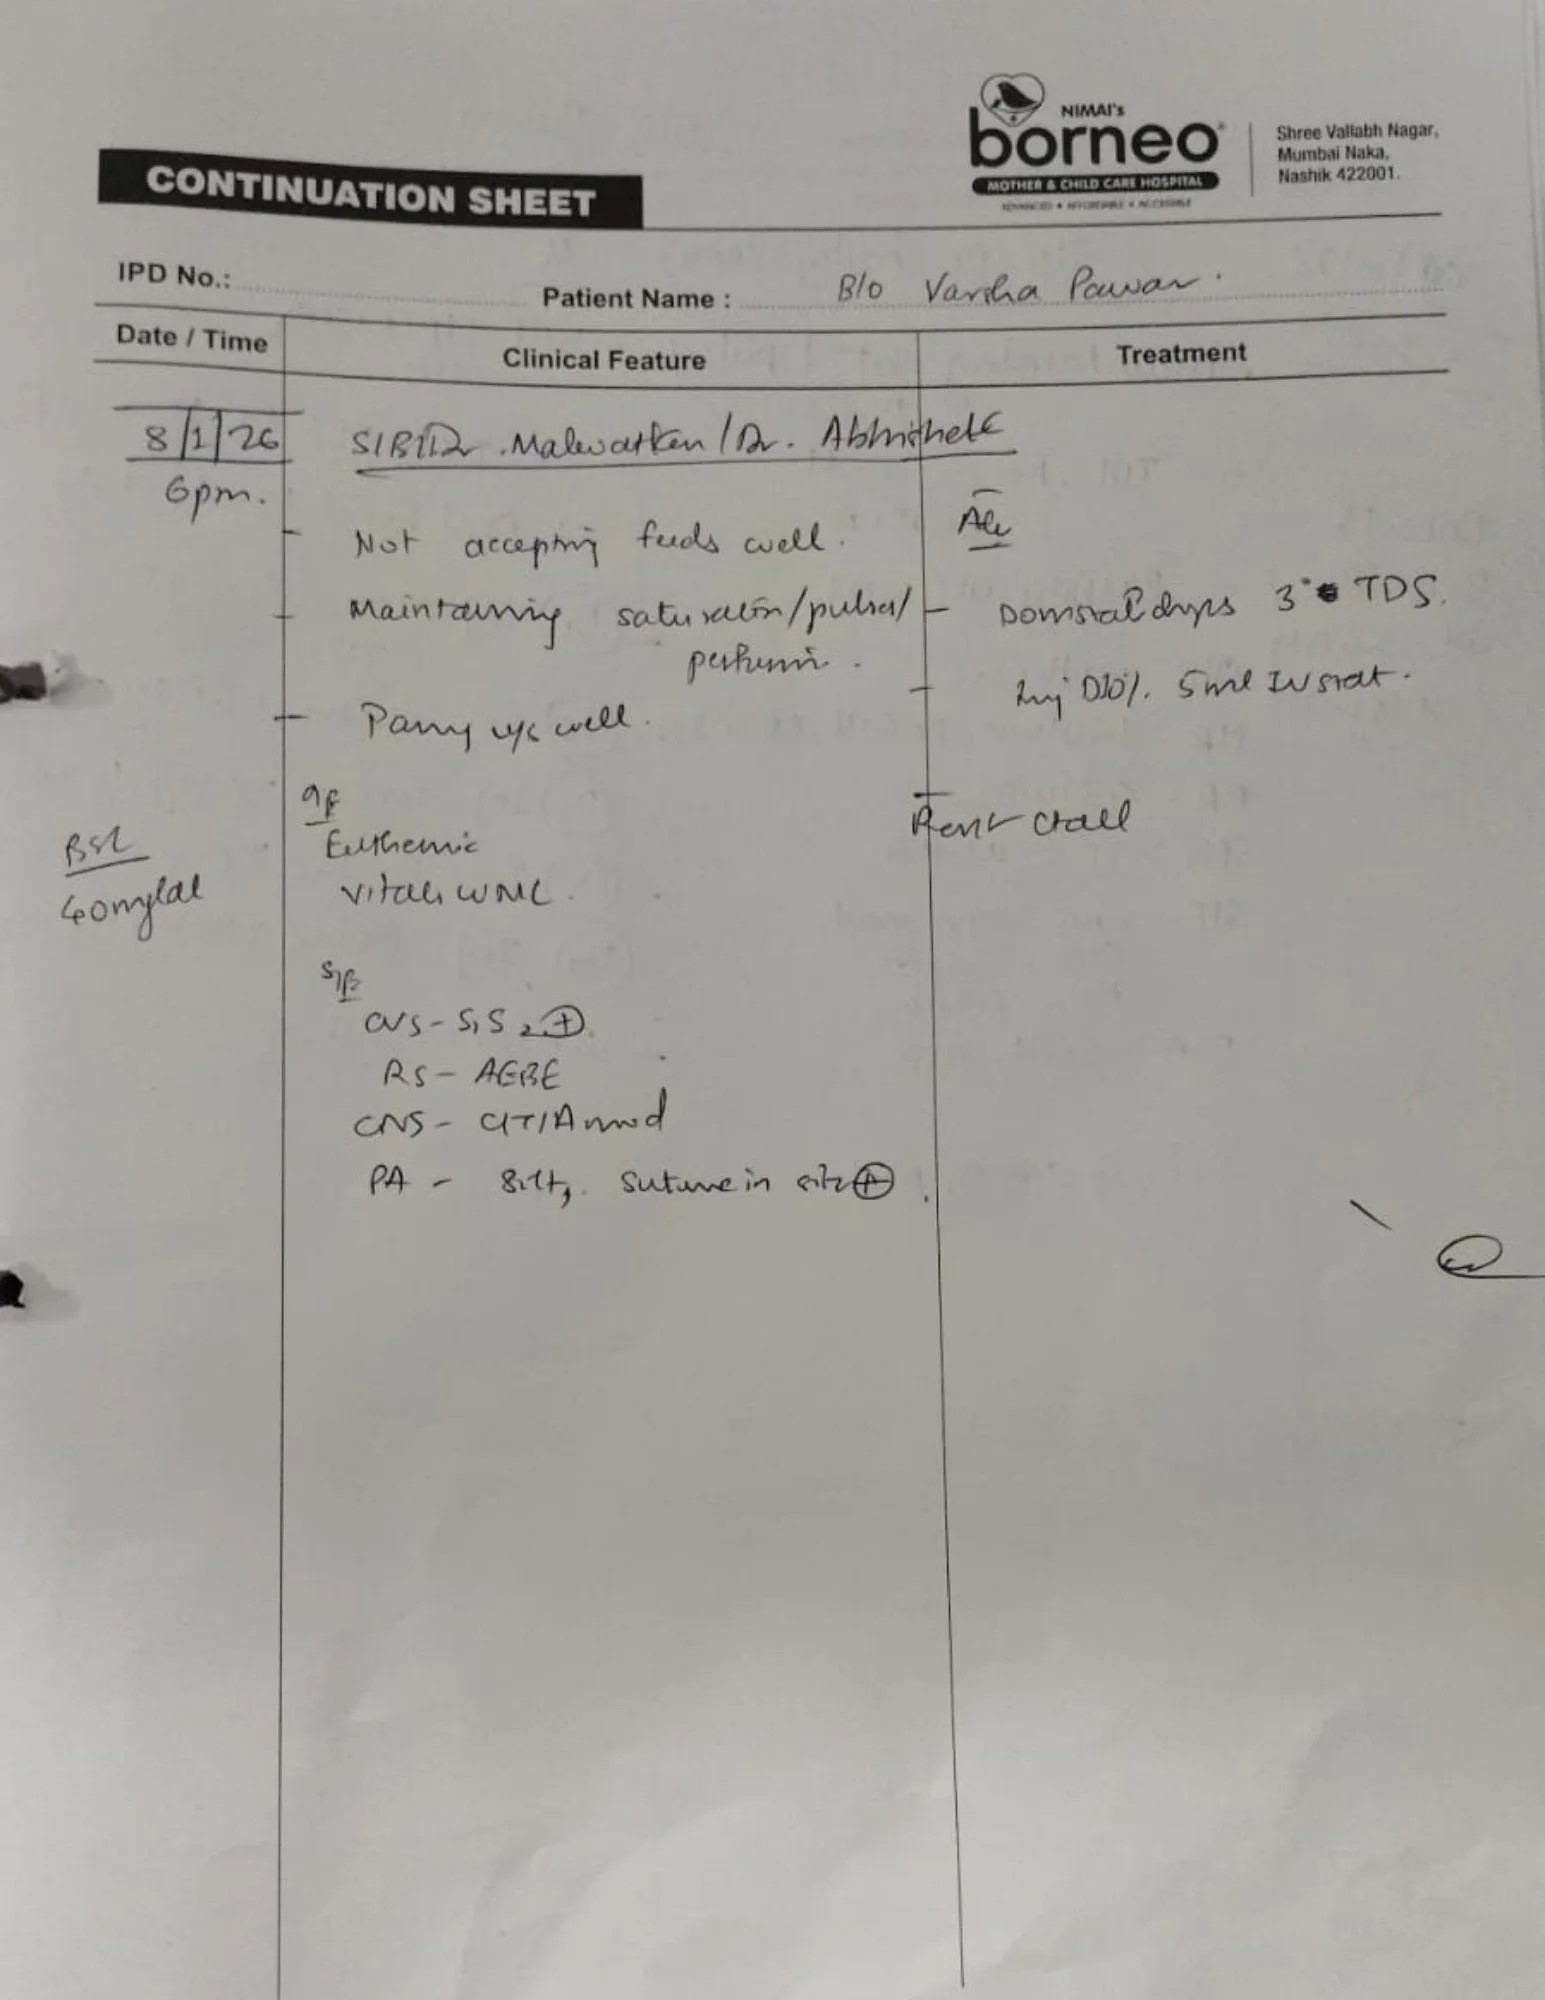 CONTINUATION SHEET
NIMAI's
borneo
MOTHER & CHILD CARE HOSPITAL
ADVANCED • AFFORDABLE • ACCESSIBLE
Shree Vallabh Nagar,
Mumbai Naka,
Nashik 422001.
IPD No.:
Patient Name : B/o Varsha Pawar.
Date / Time
Clinical Feature
Treatment
8/1/26
S/B Dr. / Dr. Abhishek
6pm.
Not accepting feeds well.
Adv
Maintaining saturation/pulses/
perfusion.
drops 3 TDS.
Inj D10%. 5ml IV stat.
Passing u/s well.
O/E
Euthermic
Vitals WNL.
BSL
mg/dl
S/E
CVS - S1S2 +
RS - AEBE
CNS - C/T/A
PA - Soft, suture in situ +